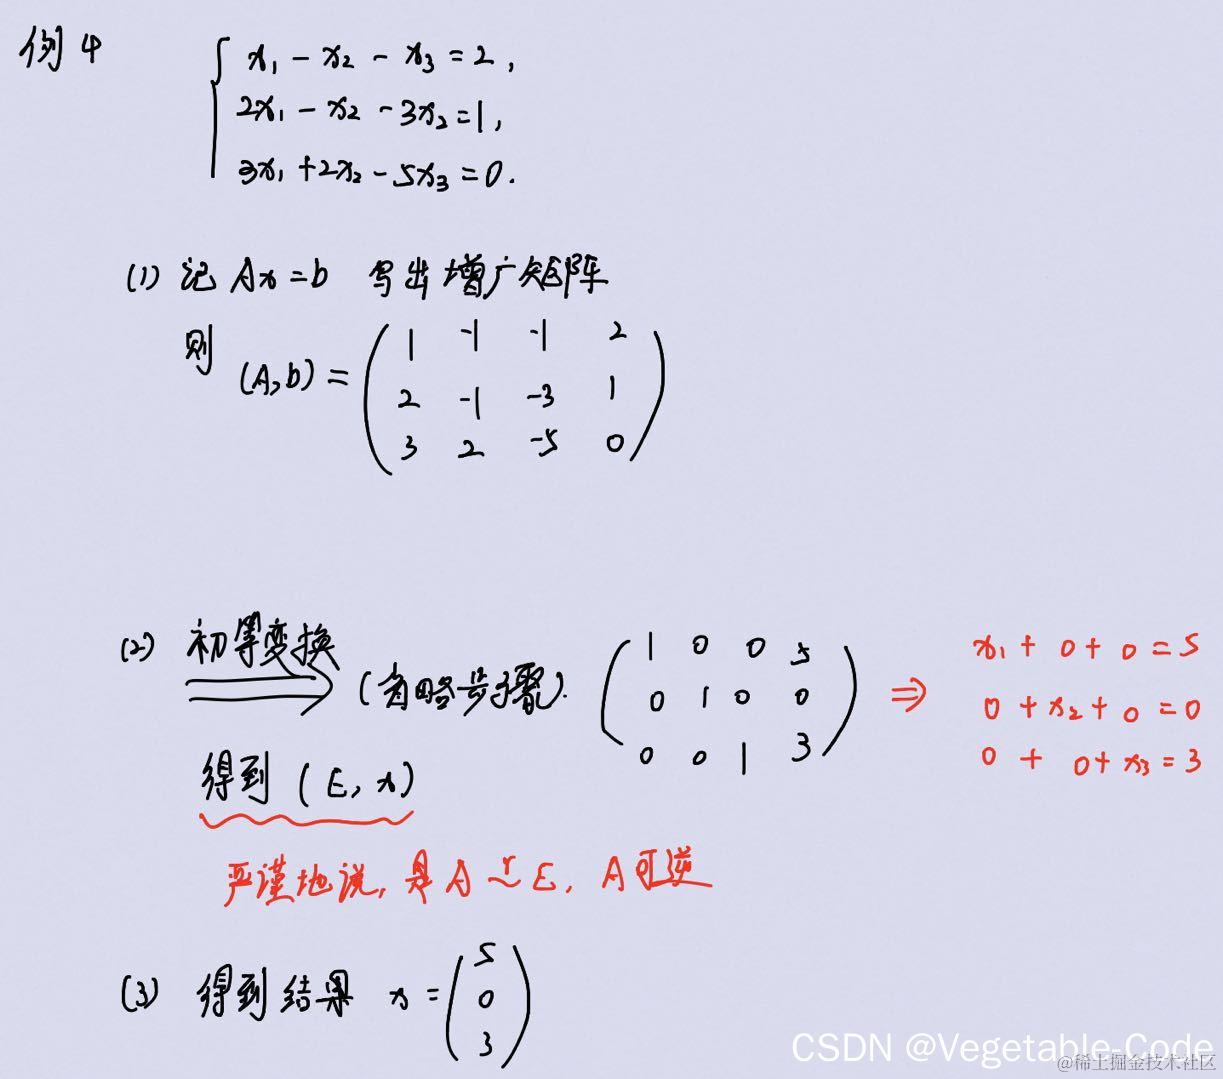 例4
x₁ - x₂ - x₃ = 2,
2x₁ - x₂ - 3x₂ = 1,
3x₁ + 2x₂ - 5x₃ = 0.
(1) 记 Ax = b 写出增广矩阵
则 (A, b) =
1 -1 -1 2
2 -1 -3 1
3 2 -5 0
(2) 初等变换 (省略步骤).
1 0 0 5
0 1 0 0
0 0 1 3
⇒
x₁ + 0 + 0 = 5
0 + x₂ + 0 = 0
0 + 0 + x₃ = 3
得到 (E, x)
严谨地说, 是 A ~r E, A可逆
(3) 得到结果 x =
5
0
3
CSDN @Vegetable-Code
@稀土掘金技术社区